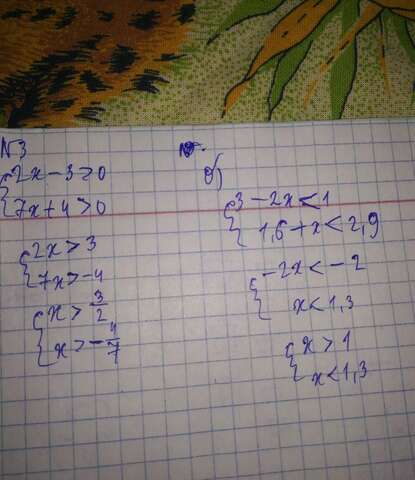 №3
{2x - 3 > 0
{7x + 4 > 0
{2x > 3
{7x > -4
{x > 3/2
{x > -4/7
б)
{3 - 2x < 1
{1,6 + x < 2,9
{-2x < -2
{x < 1,3
{x > 1
{x < 1,3